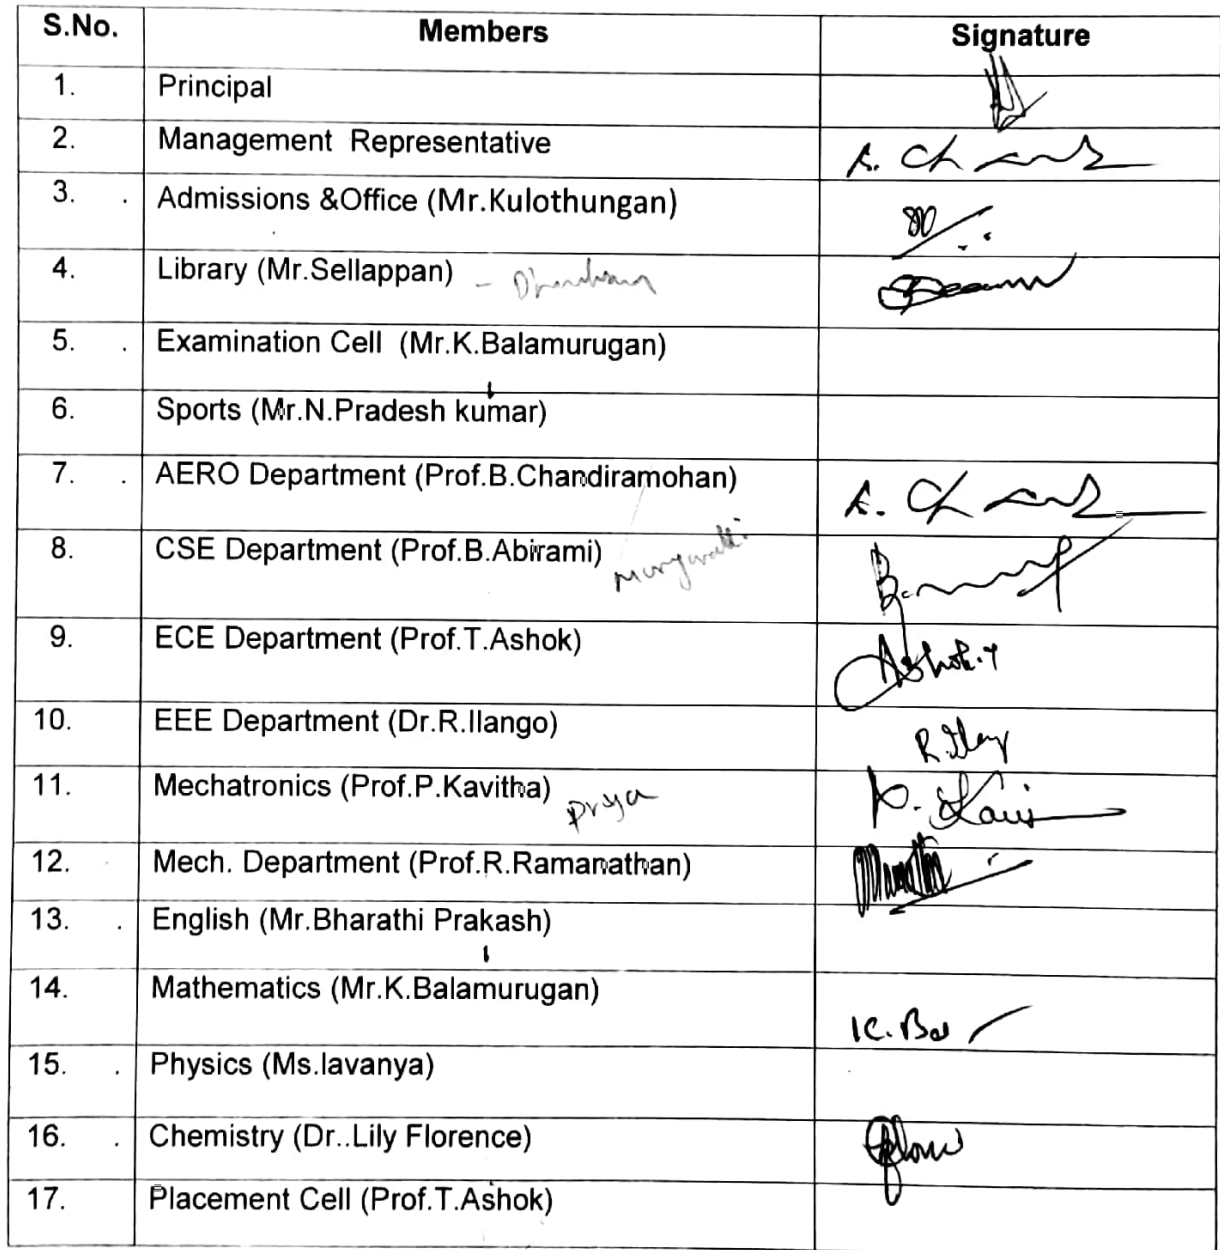 S.No. Members Signature
1. Principal
2. Management Representative A. Ch
3. Admissions &Office (Mr.Kulothungan)
4. Library (Mr.Sellappan) -
5. Examination Cell (Mr.K.Balamurugan)
6. Sports (Mr.N.Pradesh kumar)
7. AERO Department (Prof.B.Chandiramohan) A. Ch
8. CSE Department (Prof.B.Abirami)
9. ECE Department (Prof.T.Ashok) Ashok.T
10. EEE Department (Dr.R.Ilango)
11. Mechatronics (Prof.P.Kavitha) Priya
12. Mech. Department (Prof.R.Ramanathan)
13. English (Mr.Bharathi Prakash)
14. Mathematics (Mr.K.Balamurugan) K.Bal
15. Physics (Ms.lavanya)
16. Chemistry (Dr..Lily Florence)
17. Placement Cell (Prof.T.Ashok)